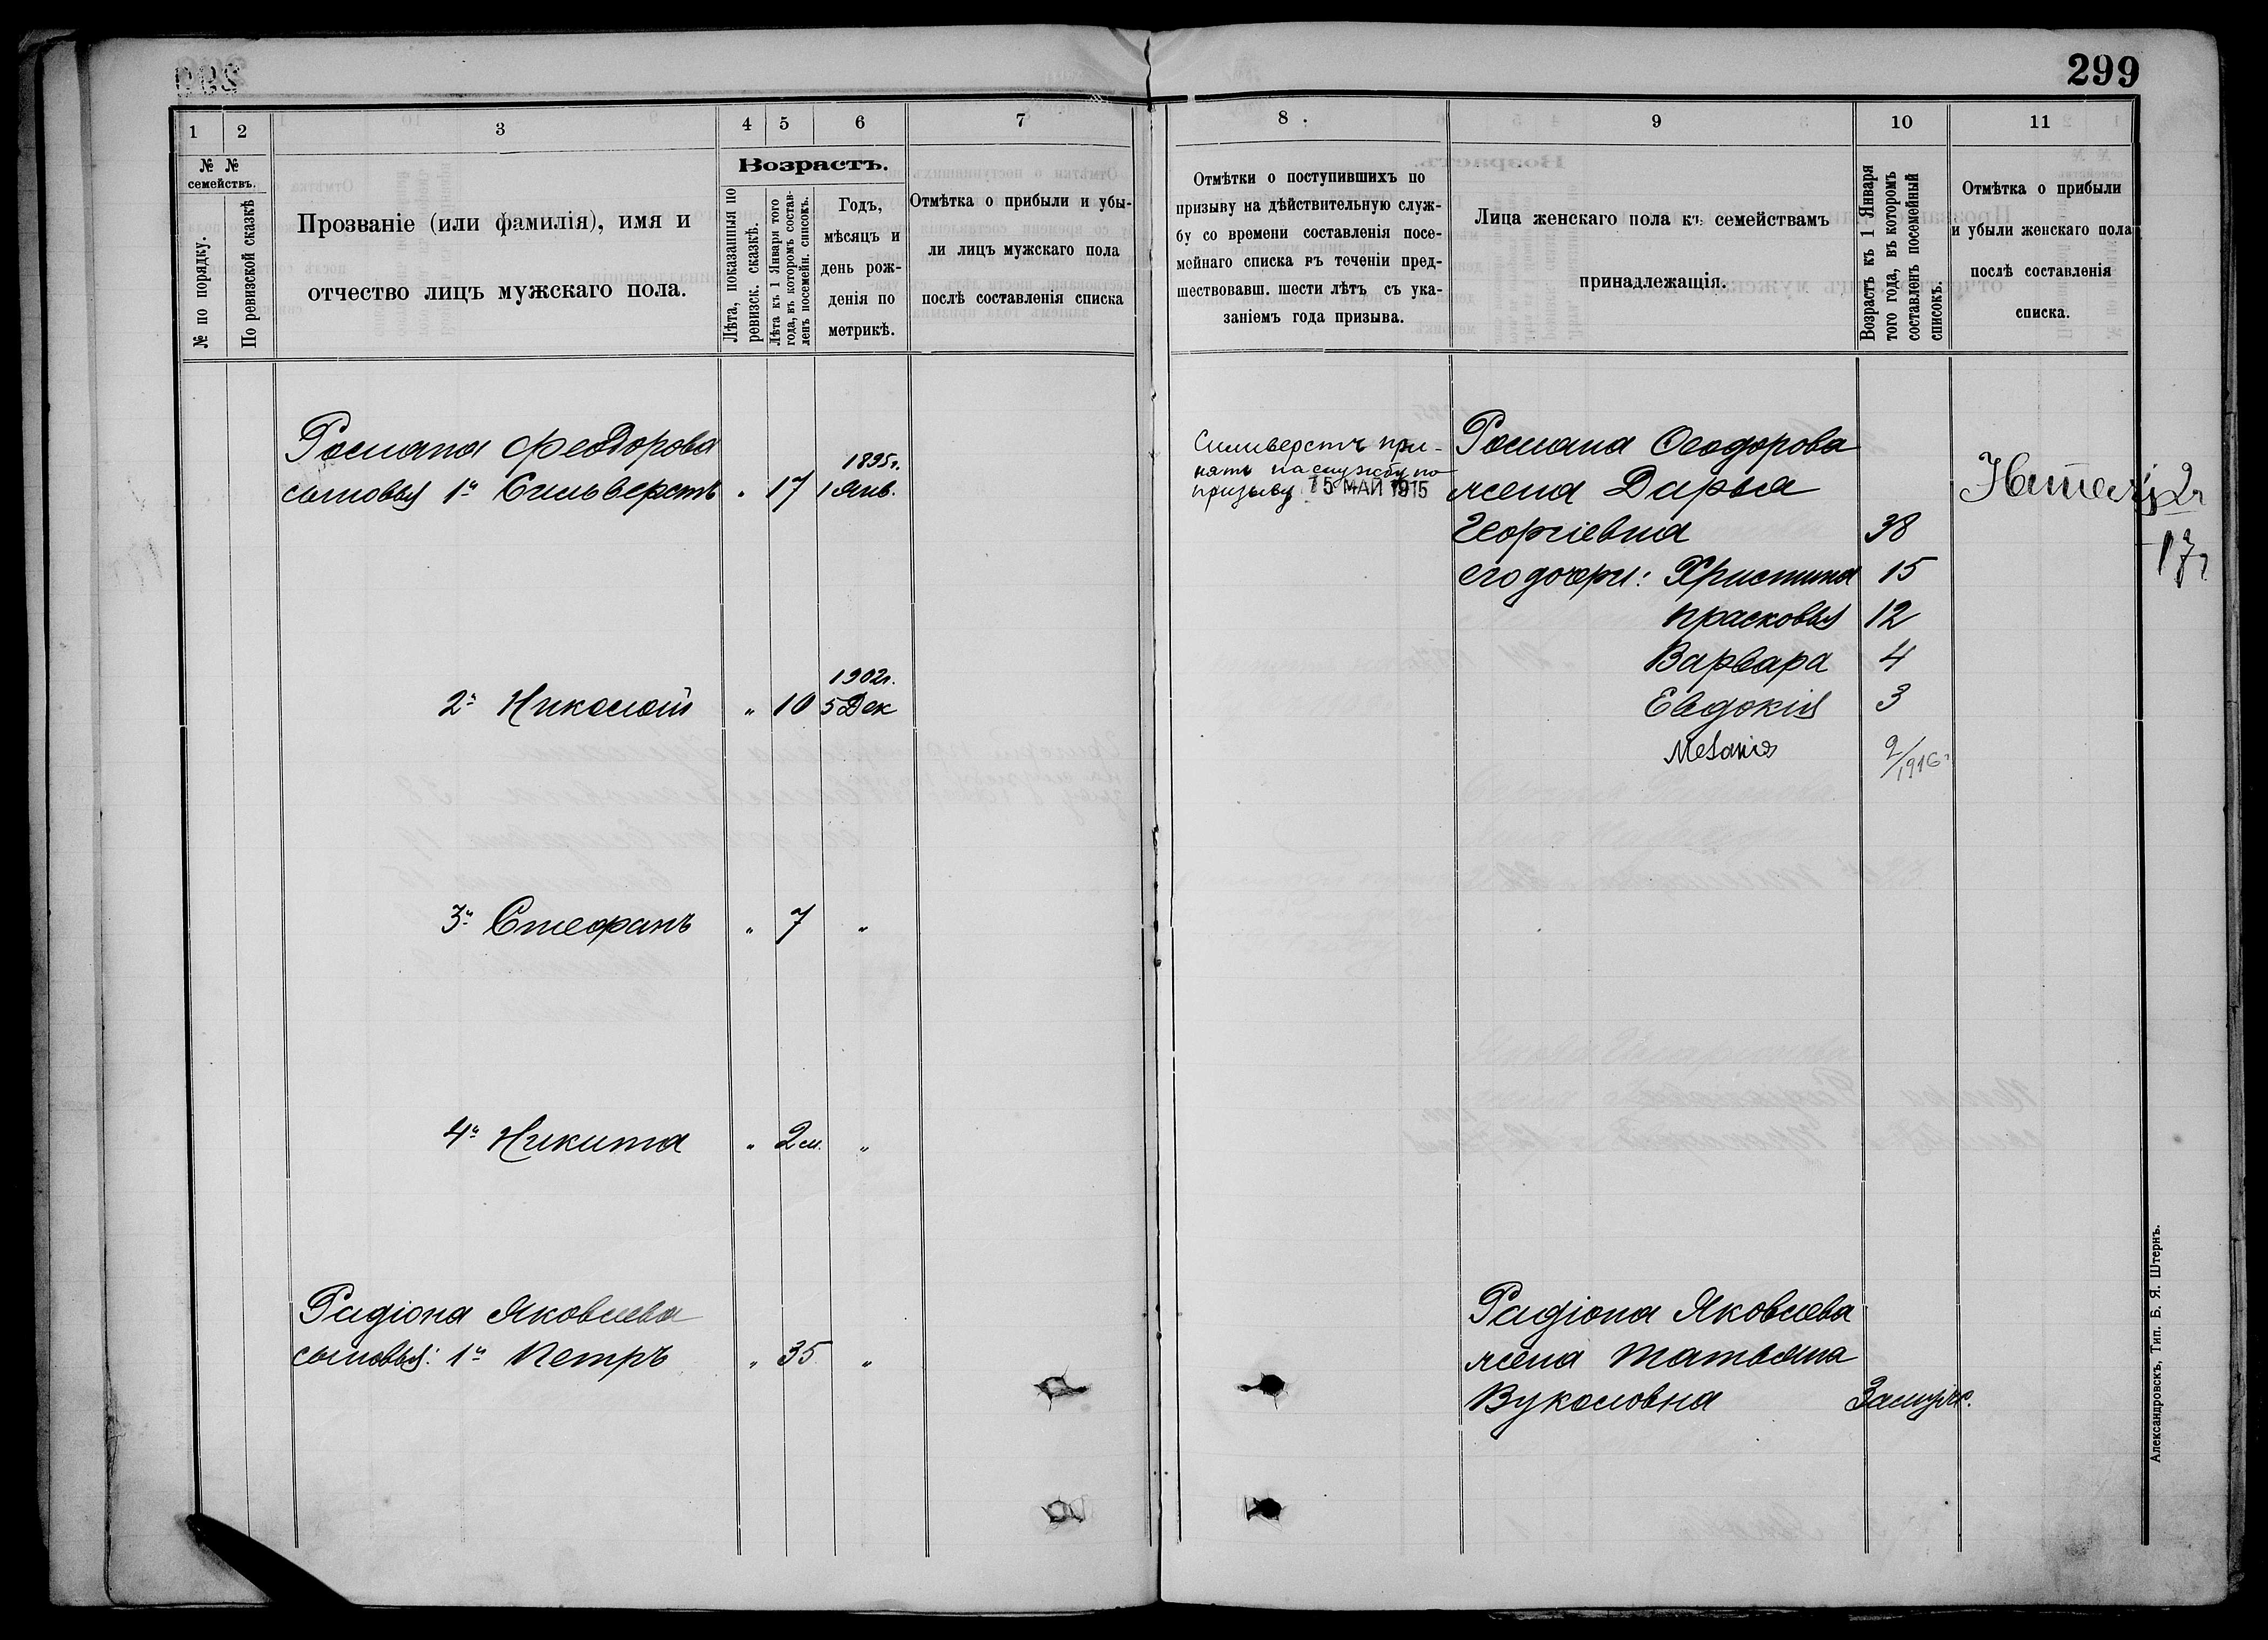 299
1
2
3
4
5
6
7
№ №
семействъ.
№ по порядку.
По ревизской сказкѣ
Прозваніе (или фамилія), имя и
отчество лицъ мужскаго пола.
Возрастъ.
Лѣта, показанныя по
ревизск. сказкѣ.
Лѣта къ 1 Января того
года, въ которомъ состав-
ленъ посемейн. списокъ.
Годъ,
мѣсяцъ и
день рож-
денія по
метрикѣ.
Отмѣтка о прибыли и убы-
ли лицъ мужскаго пола
послѣ составленія списка
Романа Феодорова
1895г.
сыновья 1й Сильверстъ " 17 1 Янв.
1902г.
2й Николай " 10 5 Дек
3й Стефанъ " 7 "
4й Никита " 2 м. "
Радіона Яковлева
сыновья: 1й Петръ " 35 "
8
9
10
11
Отмѣтки о поступившихъ по
призыву на дѣйствительную служ-
бу со времени составленія посе-
мейнаго списка въ теченіи пред-
шествовавш. шести лѣтъ съ ука-
заніемъ года призыва.
Лица женскаго пола къ семействамъ
принадлежащія.
Возрастъ къ 1 Января
того года, въ которомъ
составленъ посемейный
списокъ.
Отмѣтка о прибыли
и убыли женскаго пола
послѣ составленія
списка.
Силиверстъ при-
нятъ на службу по
призыву 15 МАЙ 1915
Романа Феодорова
жена Дарья
Георгіевна 38
его дочери: Христина 15
Прасковья 12
Варвара 4
Евдокія 3
Меланія 9/1916г
2г
17г
Радіона Яковлева
жена Татьяна
Вуколовна Замуж.
Александровскъ, Тип. Б. Я. Штернъ.